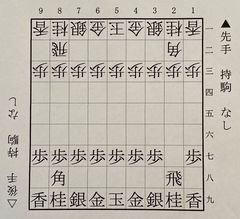 ９ ８ ７ ６ ５ ４ ３ ２ １
香 桂 銀 金 玉 金 銀 桂 香 一
飛 角 二
歩 歩 歩 歩 歩 歩 歩 歩 歩 三
四
五
六
歩 歩 歩 歩 歩 歩 歩 歩 七
角 飛 八
香 桂 銀 金 玉 金 銀 桂 香 九
▲先手 持駒 なし
△後手 持駒 なし